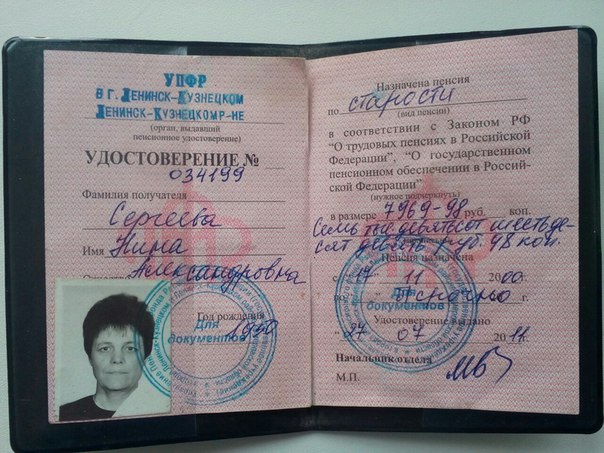 УПФР
В Г. ЛЕНИНСК-КУЗНЕЦКОМ
ЛЕНИНСК-КУЗНЕЦКОМ Р-НЕ
(орган, выдавший
пенсионное удостоверение)
УДОСТОВЕРЕНИЕ №
034199
Фамилия получателя
Сергеева
Имя Нина
Александровна
Год рождения
1950
Для
документов
Назначена пенсия
по старости
(вид пенсии)
в соответствии с Законом РФ
“О трудовых пенсиях в Российской
Федерации”, “О государственном
пенсионном обеспечении в Россий-
ской Федерации”
(нужное подчеркнуть)
в размере 7969-98 руб. коп.
Семь тыс девятсот шестьде-
сят девять руб. 98 коп.
Пенсия назначена
с 17 11 2000
по бессрочно
Для
документов
Удостоверение выдано
27 07 2011.
Начальник отдела
М.П.